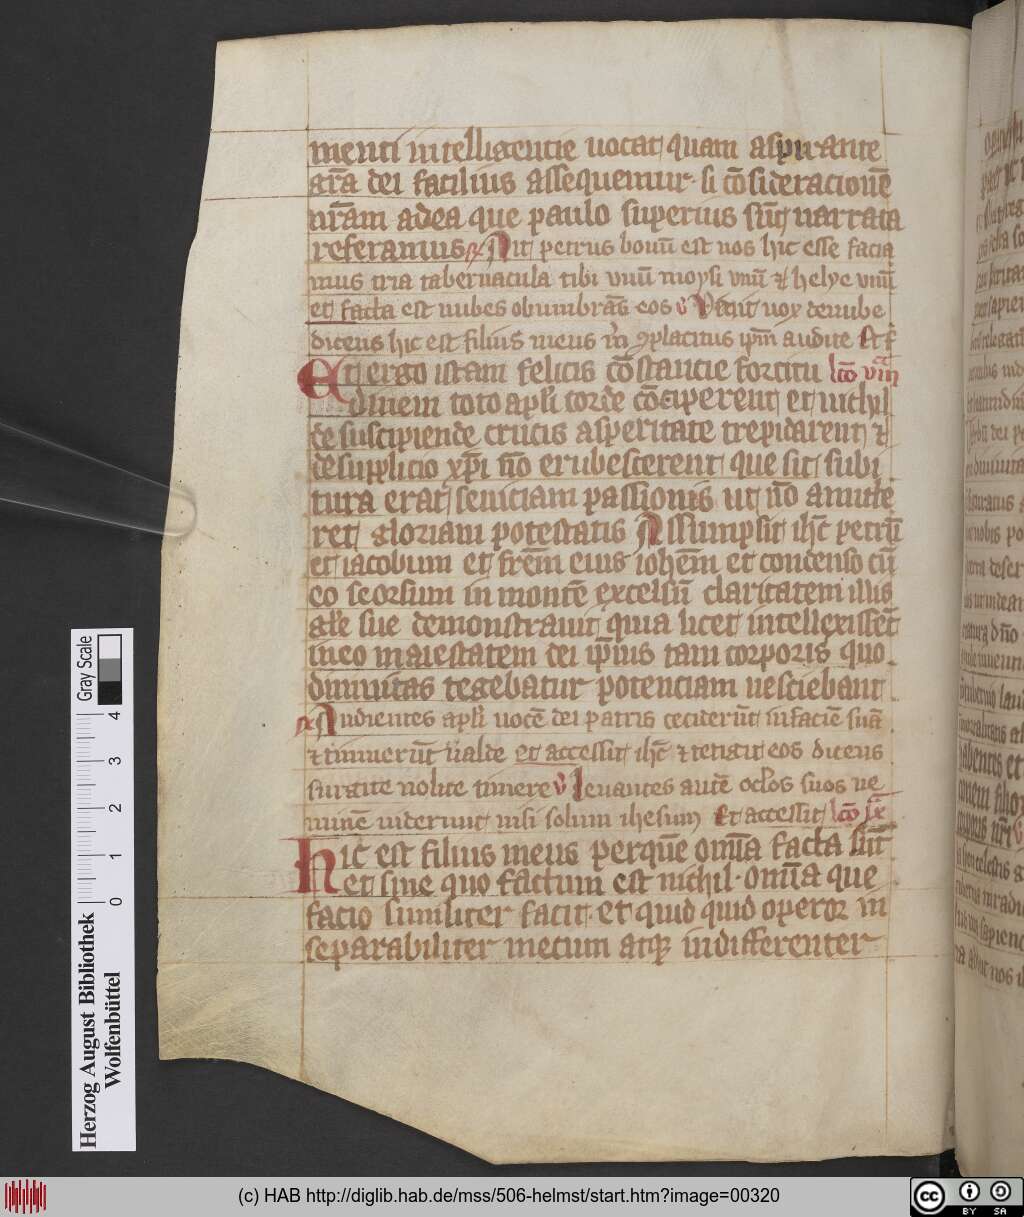 menti intelligentie uocat quam aspirante
gr̄a dei facilius assequemur· si cōsideracionē
nr̄am adea que paulo superius sūt narrata
referamus ꝶ Ait petrus bonū est nos hic esse facia
mus tria tabernacula tibi vnū moysi vnū ⁊ helye vnū
et facta est nubes obumbrās eos v̄ Venit vox de nube
dicens hic est filius meus in ꝯplacitus ipm̄ audite Et f
Et ergo istam felicis cōstancie fortitu lcō viii
dinem toto apl̄i corde cōciperent et nichil
de suscipiende crucis asperitate trepidarent ⁊
de supplicio xp̄i nō erubescerent que sit subi
tura erat seuiciam passionis ut nō amitte
ret gloriam potestatis Assumpsit ihc̄ petrū
et iacobum et frēm eius ioh̄em et condenso cū
eo seorsum in montē excelsū claritatem illis
gl̄e sue demonstrauit quia licet intellexissēt
in eo maiestatem dei ip̄ius tam corporis quo
diuinitas tegebatur potenciam nesciebant
ꝶ Audientes apl̄i uocē dei patris ceciderūt in faciē suā
⁊ timuerūt ualde et accessit ihc̄ ⁊ tetigit eos dicens
surgite nolite timere v̄ Leuantes autē oclōs suos ne
minē uiderunt nisi solum ihesum Et accessit lcō
Hic est filius meus per quē omīa facta sūt
et sine quo factum est nichil· omīa que
facio similiter facit· et quid quid operor in
separabiliter mecum atqꝫ indifferenter
Gray Scale
0 1 2 3 4
Herzog August Bibliothek
Wolfenbüttel
(c) HAB http://diglib.hab.de/mss/506-helmst/start.htm?image=00320
cc BY SA